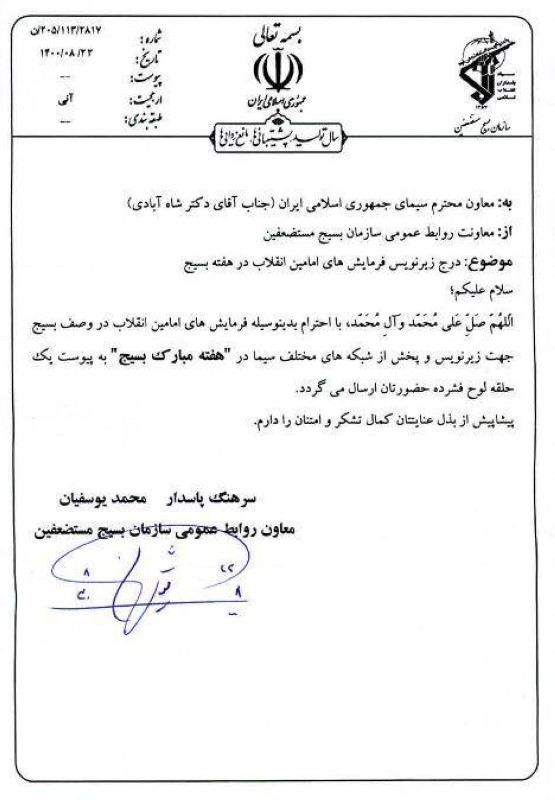 بسمه تعالی
جمهوری اسلامی ایران
سال تولید، پشتیبانی‌ها، مانع‌زدایی‌ها
سپاه پاسداران انقلاب اسلامی
سازمان بسیج مستضعفین
شماره: ۲۰۵/۱۱۳/۲۸۱۷/ن
تاریخ: ۱۴۰۰/۰۸/۲۲
پیوست: --
ارجحیت: آنی
طبقه بندی: --
به: معاون محترم سیمای جمهوری اسلامی ایران (جناب آقای دکتر شاه آبادی)
از: معاونت روابط عمومی سازمان بسیج مستضعفین
موضوع: درج زیرنویس فرمایش های امامین انقلاب در هفته بسیج
سلام علیکم؛
اللهُمَ صَلِّ عَلی مُحَمَّد وَآلِ مُحَمَّد، با احترام بدینوسیله فرمایش های امامین انقلاب در وصف بسیج
جهت زیرنویس و پخش از شبکه های مختلف سیما در "هفته مبارک بسیج" به پیوست یک
حلقه لوح فشرده حضورتان ارسال می گردد.
پیشاپیش از بذل عنایتتان کمال تشکر و امتنان را دارم.
سرهنگ پاسدار محمد یوسفیان
معاون روابط عمومی سازمان بسیج مستضعفین